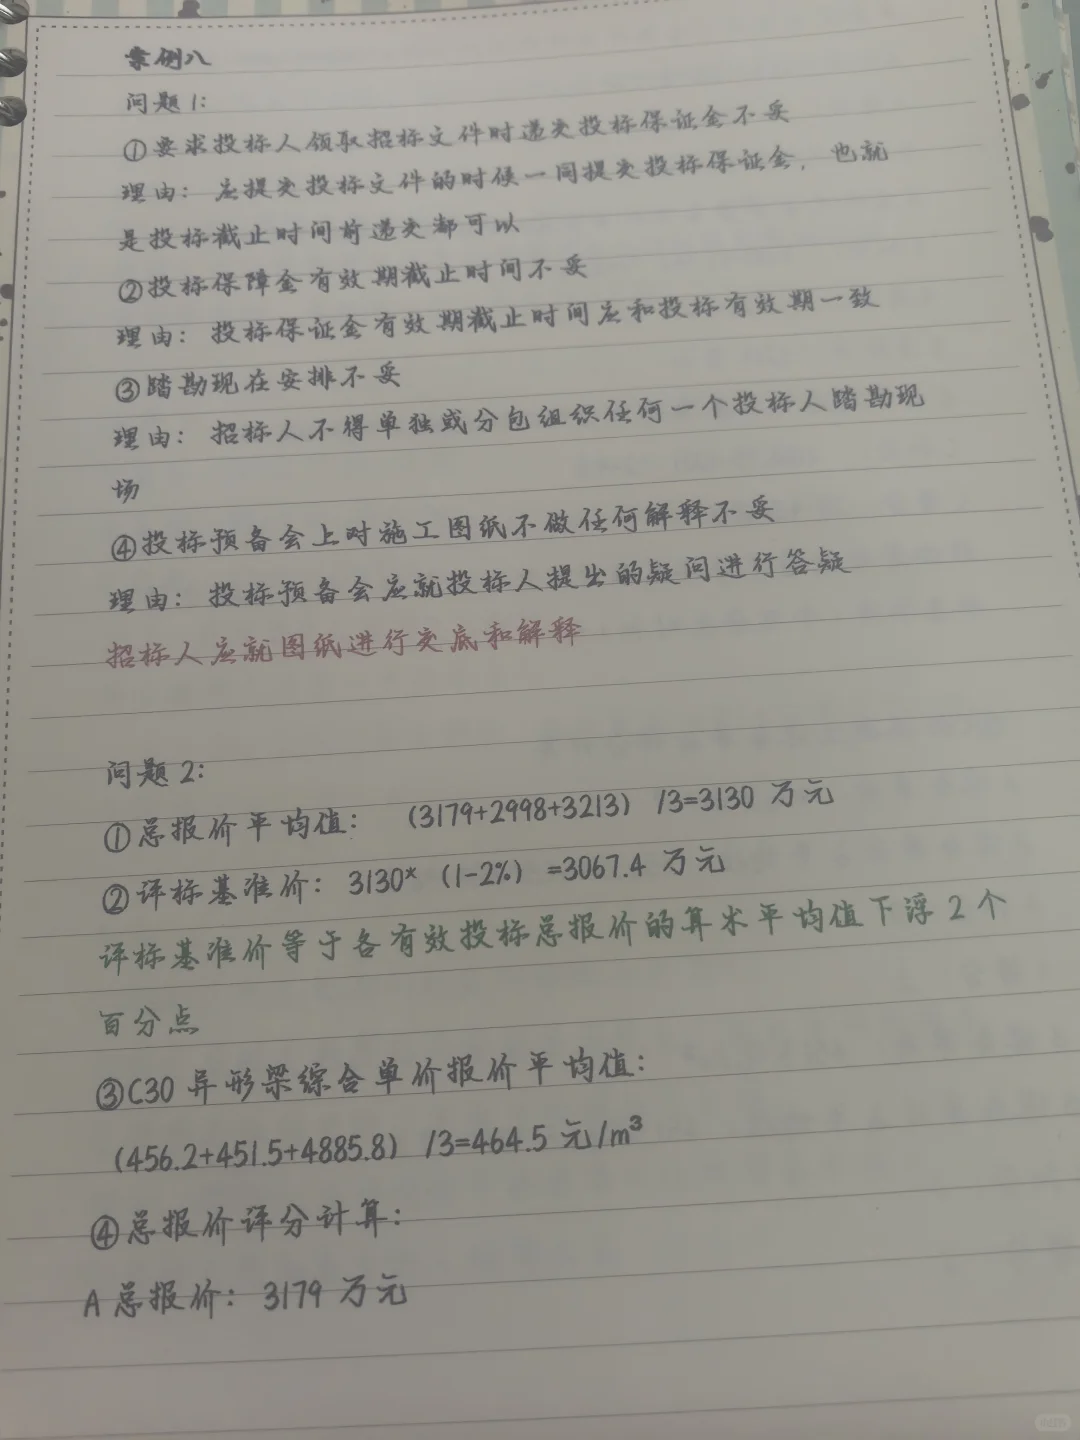 案例八
问题1:
①要求投标人领取招标文件时递交投标保证金不妥
理由：应提交投标文件的时候一同提交投标保证金，也就
是投标截止时间前递交都可以
②投标保障金有效期截止时间不妥
理由：投标保证金有效期截止时间应和投标有效期一致
③踏勘现在安排不妥
理由：招标人不得单独或分包组织任何一个投标人踏勘现
场
④投标预备会上对施工图纸不做任何解释不妥
理由：投标预备会应就投标人提出的疑问进行答疑
招标人应就图纸进行交底和解释
问题2:
①总报价平均值：（3179+2998+3213）/3=3130 万元
②评标基准价：3130*（1-2%）=3067.4 万元
评标基准价等于各有效投标总报价的算术平均值下浮2个
百分点
③C30异形梁综合单价报价平均值：
（456.2+451.5+4885.8）/3=464.5 元/m³
④总报价评分计算：
A总报价：3179 万元